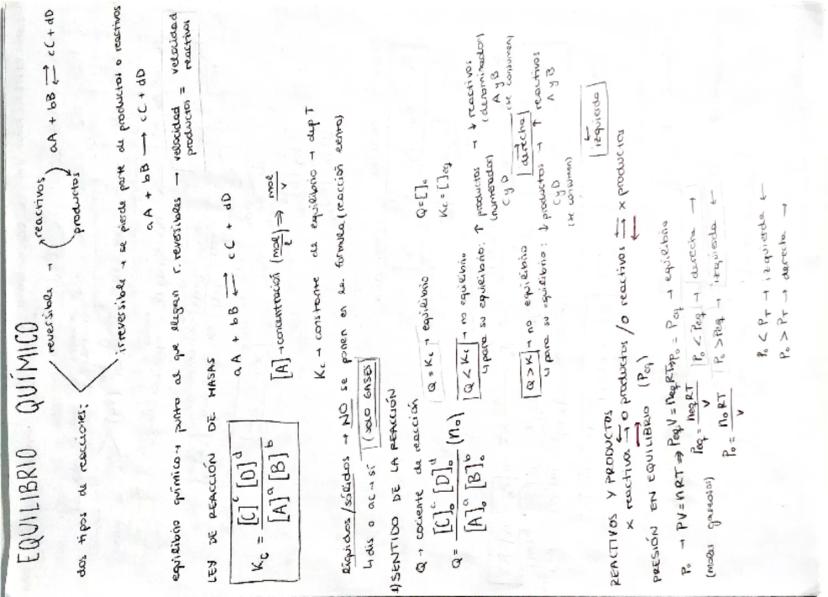 EQUILIBRIO QUÍMICO
dos tipos de reacciones:
reversible → reactivos productos aA + bB ⇄ cC + dD
irreversible → se pierde parte de productos o reactivos
aA + bB → cC + dD
equilibrio químico → punto al que llegan r. reversibles → velocidad productos = velocidad reactivos
LEY DE REACCIÓN DE MASAS
aA + bB ⇄ cC + dD
Kc = [C]^c [D]^d / [A]^a [B]^b
[A] → concentración (mol/L) ⇒ mol/v
Kc → constante de equilibrio → dep T
líquidos/sólidos → NO se ponen en la formula (reacción
↳ dis o ac → sí (SOLO GASES)
1) SENTIDO DE LA REACCIÓN
Q → cociente de reacción
Q = [C]₀^c [D]₀^d / [A]₀^a [B]₀^b (n₀)
Q = Kc → equilibrio
Q = [ ]₀
Kc = [ ]eq
Q < Kc → no equilibrio
↳ para su equilibrio: ↑ productos → ↓ reactivos
(numerador) (denominador)
C y D A y B
(se consumen)
derecha →
Q > K → no equilibrio
↳ para su equilibrio: ↓ productos → ↑ reactivos
C y D A y B
(se consumen)
izquierda ←
REACTIVOS Y PRODUCTOS
x reactivos ⇄ 0 productos / 0 reactivos ⇄ x productos
PRESIÓN EN EQUILIBRIO (Peq)
P₀ → PV = nRT ⇒ Peq V = neq RT P₀ = Peq → equilibrio
(moles gaseosos) Peq = neq RT / V P₀ < Peq → derecha →
P₀ = n₀ RT / V P₀ > Peq → izquierda ←
P₀ < PT → izquierda ←
P₀ > PT → derecha →